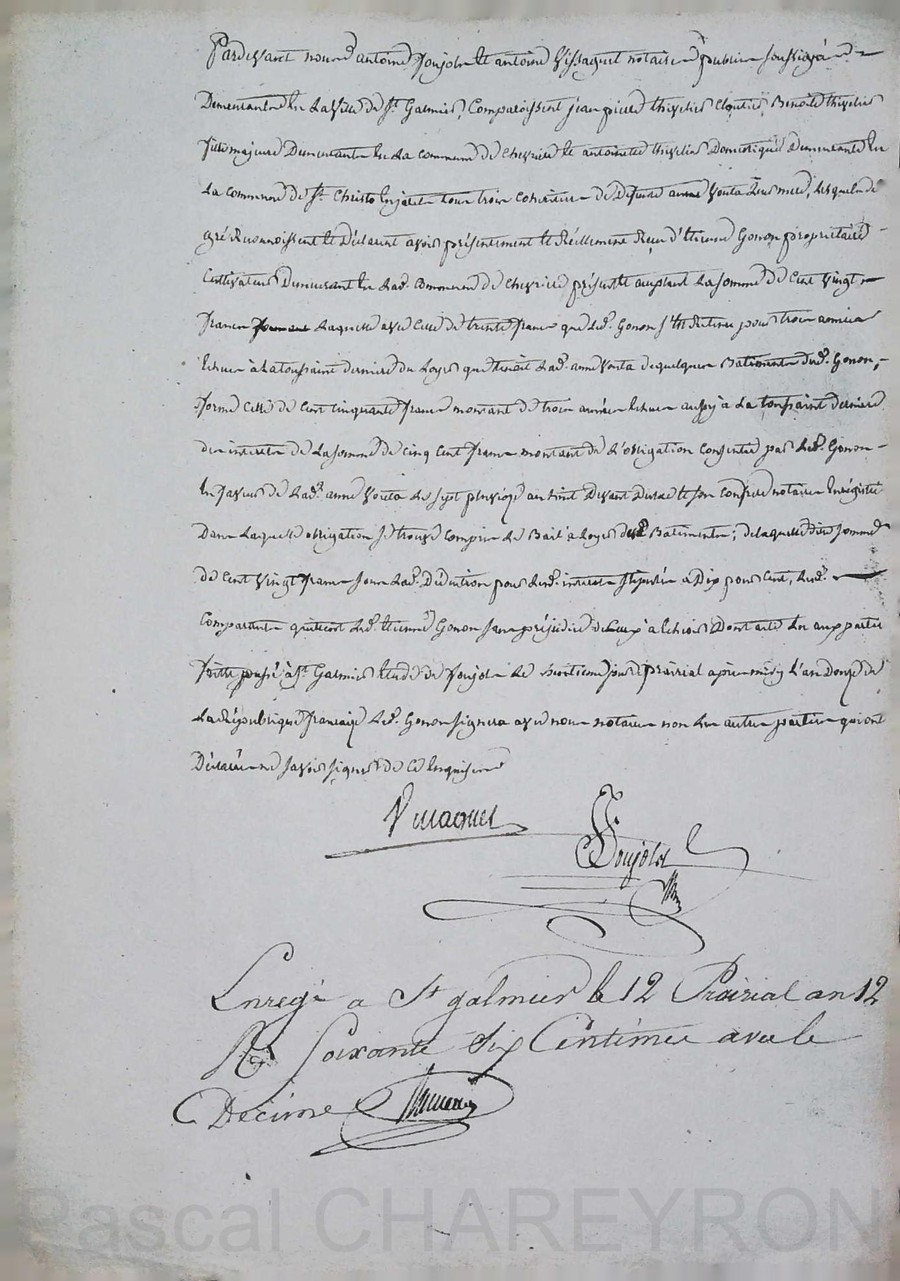 Pardevant nous antoine Poujolat et antoine Vissaguet notaires publics soussignés
Demeurants en La Ville de St. Galmier, Comparoissent jean pierre thivelier Cloutier Benoite thivelier
fille majeure Demeurante en La commune de Chevrieres et antoinette thivelier Domestique Demeurante en
La commune de St. Christo tous trois Cohéritiers de Defunte anne Vouta Leur mere, Lesquels de
gré Reconnoissent et Déclarent avoir présentement et Réellement Reçu d'etienne Gonon propriétaire
Cultivateur Demeurant en Lad. Commune de Chevrieres présent et acceptant La somme de Cent Vingt
francs Laquelle avec Celle de trente francs que Led. Gonon s'est Retenue pour trois années
Echues à La toussaint derniere du Loyer que devoit Lad. anne Vouta de quelques Batiments dud. Gonon,
forme Celle de Cent cinquante francs montant de trois années Echues aussy à La toussaint derniere
des interets de La somme de cinq Cent francs montant de L'obligation consentie par Led. Gonon
En faveur de Lad. anne Vouta Le sept pluviose an huit Devant et son Confrere notaires Enregistrée
Dans Laquelle obligation se trouve compris Le Bail à Loyer des Batiments; de laquelle dite somme
de Cent Vingt francs Déduction pour Lesd. interets à Dix pour Cent, Lesd.
Comparants quittent Led. etienne Gonon sans préjudice de Ceux à Echeoir Dont acte Lu aux parties
fait et passé à St. Galmier Etude de Poujolat Le jour prairial après midy L'an Douze de
La République française Led. Gonon signera avec nous notaires non Les autres parties qui ont
Déclaré ne savoir signer de Ce Enquises
Vissaguet
Poujolat
Enregé a St galmier le 12 Prairial an 12
Rç Soixante dix Centimes avec le
Decime
Pascal CHAREYRON